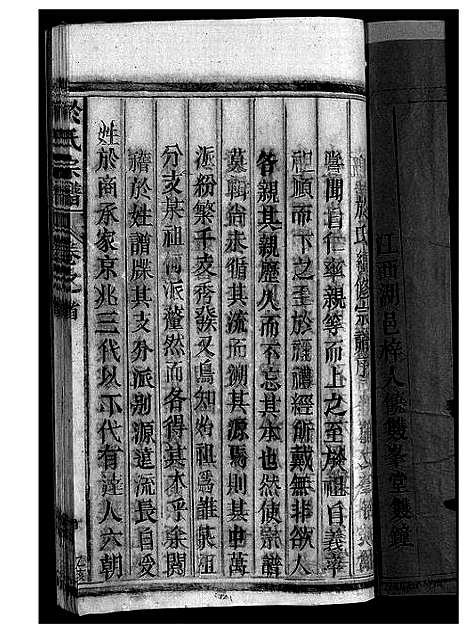 江西湖邑梓人
於氏續修宗譜序
嘗聞自仁率親等而上之至於祖自義率
祖順而下之至於禰禮經所載無非欲人
各親其親歷久而不忘其本也然使宗譜
莫輯尚未循其流而溯其源焉則其中萬
派紛繁千支秀發又烏知始祖為誰某祖
分支某祖何派釐然而各得其本乎余閱
於姓譜牒其支分派別源遠流長自受
姓於商承家京兆三代以下代有達人六朝
於氏宗譜
卷之首